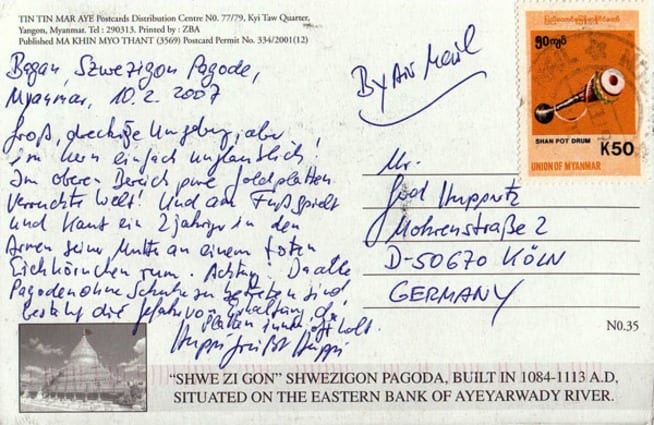 TIN TIN MAR AYE Postcards Distribution Centre N0. 77/79, Kyi Taw Quarter,
Yangon, Myanmar. Tel : 290313. Printed by : ZBA
Published MA KHIN MYO THANT (3569) Postcard Permit No. 334/2001(12)
Bagan, Szwezigon Pagode,
Myanmar, 10.2.2007
Groß, dreckige Umgebung, aber
im Kern einfach unglaublich!
Im oberen Bereich pure Goldplatten
Verrückte Welt! Und am Fuß spielt
und kaut ein 2jähriger in den
Armen seiner Mutter an einem toten
Eichhörnchen rum. Achtung: Da alle
Pagoden ohne Schuhe zu betreten sind,
besteht die Gefahr von Erkältung, da
Platten oft kalt.
Huppi grüßt Huppi
By Air Mail
၅၀ကျပ်
SHAN POT DRUM
K50
UNION OF MYANMAR
Mr.
Mohrenstraße 2
D-50670 KÖLN
GERMANY
N0.35
“SHWE ZI GON” SHWEZIGON PAGODA, BUILT IN 1084-1113 A.D,
SITUATED ON THE EASTERN BANK OF AYEYARWADY RIVER.